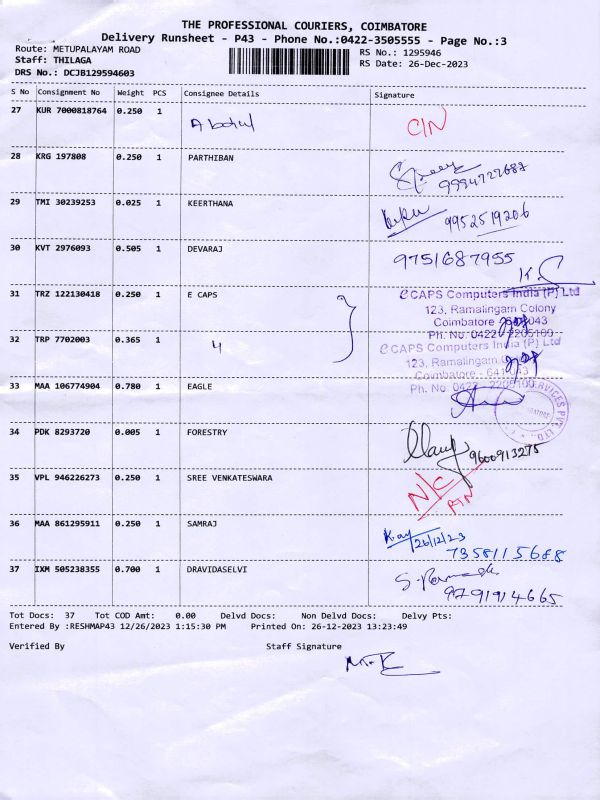 THE PROFESSIONAL COURIERS, COIMBATORE
Delivery Runsheet - P43 - Phone No.:0422-3505555 - Page No.:3
Route: METUPALAYAM ROAD
Staff: THILAGA
DRS No.: DCJB129594603
RS No.: 1295946
RS Date: 26-Dec-2023
S No Consignment No Weight PCS Consignee Details Signature
27 KUR 7000818764 0.250 1 Abdul C/N
28 KRG 197808 0.250 1 PARTHIBAN
9994727687
29 TMI 30239253 0.025 1 KEERTHANA 9952519206
30 KVT 2976093 0.505 1 DEVARAJ 9751687955
31 TRZ 122130418 0.250 1 E CAPS
eCAPS Computers India (P) Ltd
123, Ramalingam Colony
Coimbatore 043
Ph. No. 0422 2205100
32 TRP 7702003 0.365 1 4
eCAPS Computers India (P) Ltd
123, Ramalingam
Coimbatore - 641 043
Ph. No. 0422 - 2205100
33 MAA 106774904 0.780 1 EAGLE
SERVICES PVT. LTD.
34 PDK 8293720 0.005 1 FORESTRY 9600913275
35 VPL 946226273 0.250 1 SREE VENKATESWARA N/C
RTN
36 MAA 861295911 0.250 1 SAMRAJ 26/12/23
7358115688
37 IXM 505238355 0.700 1 DRAVIDASELVI
9791914665
Tot Docs: 37 Tot COD Amt: 0.00 Delvd Docs: Non Delvd Docs: Delvy Pts:
Entered By :RESHMAP43 12/26/2023 1:15:30 PM Printed On: 26-12-2023 13:23:49
Verified By Staff Signature